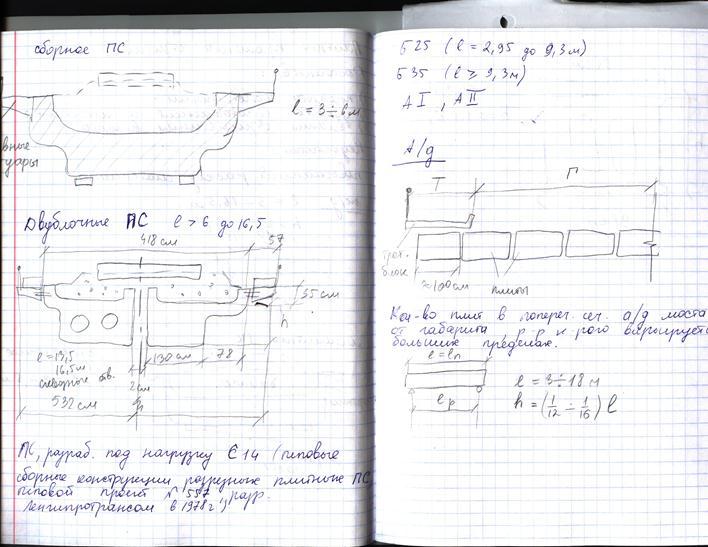 сборное ПС
l = 3÷6м
Двублочные ПС l > 6 до 16,5
418 см
57
55 см
h
l = 13,5
16,5м
130 см
78
2 см
532 см
ПС, разраб. под нагрузку С 14 (типовые
сборные конструкции разрезные плитные ПС,
типовой проект № 557, разр.
Ленгипротрансом в 1978г.)
Б 25 (l = 2,95 до 9,3 м)
Б 35 (l ≥ 9,3м)
А I , А II
А/д
Т
П
блок
≈100см
плиты
Кол-во плит в попереч. сеч. а/д моста
от габарита, р-р к-рого варьируется
больших пределах.
l = lп
lр
l = 3÷18 м
h = (1/12 ÷ 1/16) l